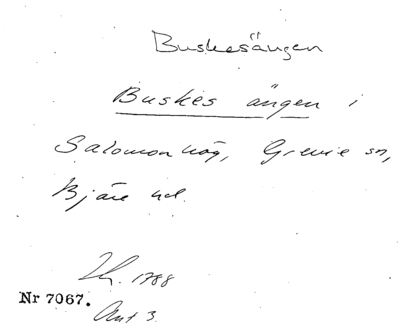 Buskesängen
Buskes ängen i
Salomonhög, Grevie sn,
Bjäre hd.
Lh. 1788
Nr 7067.
Ant 3.